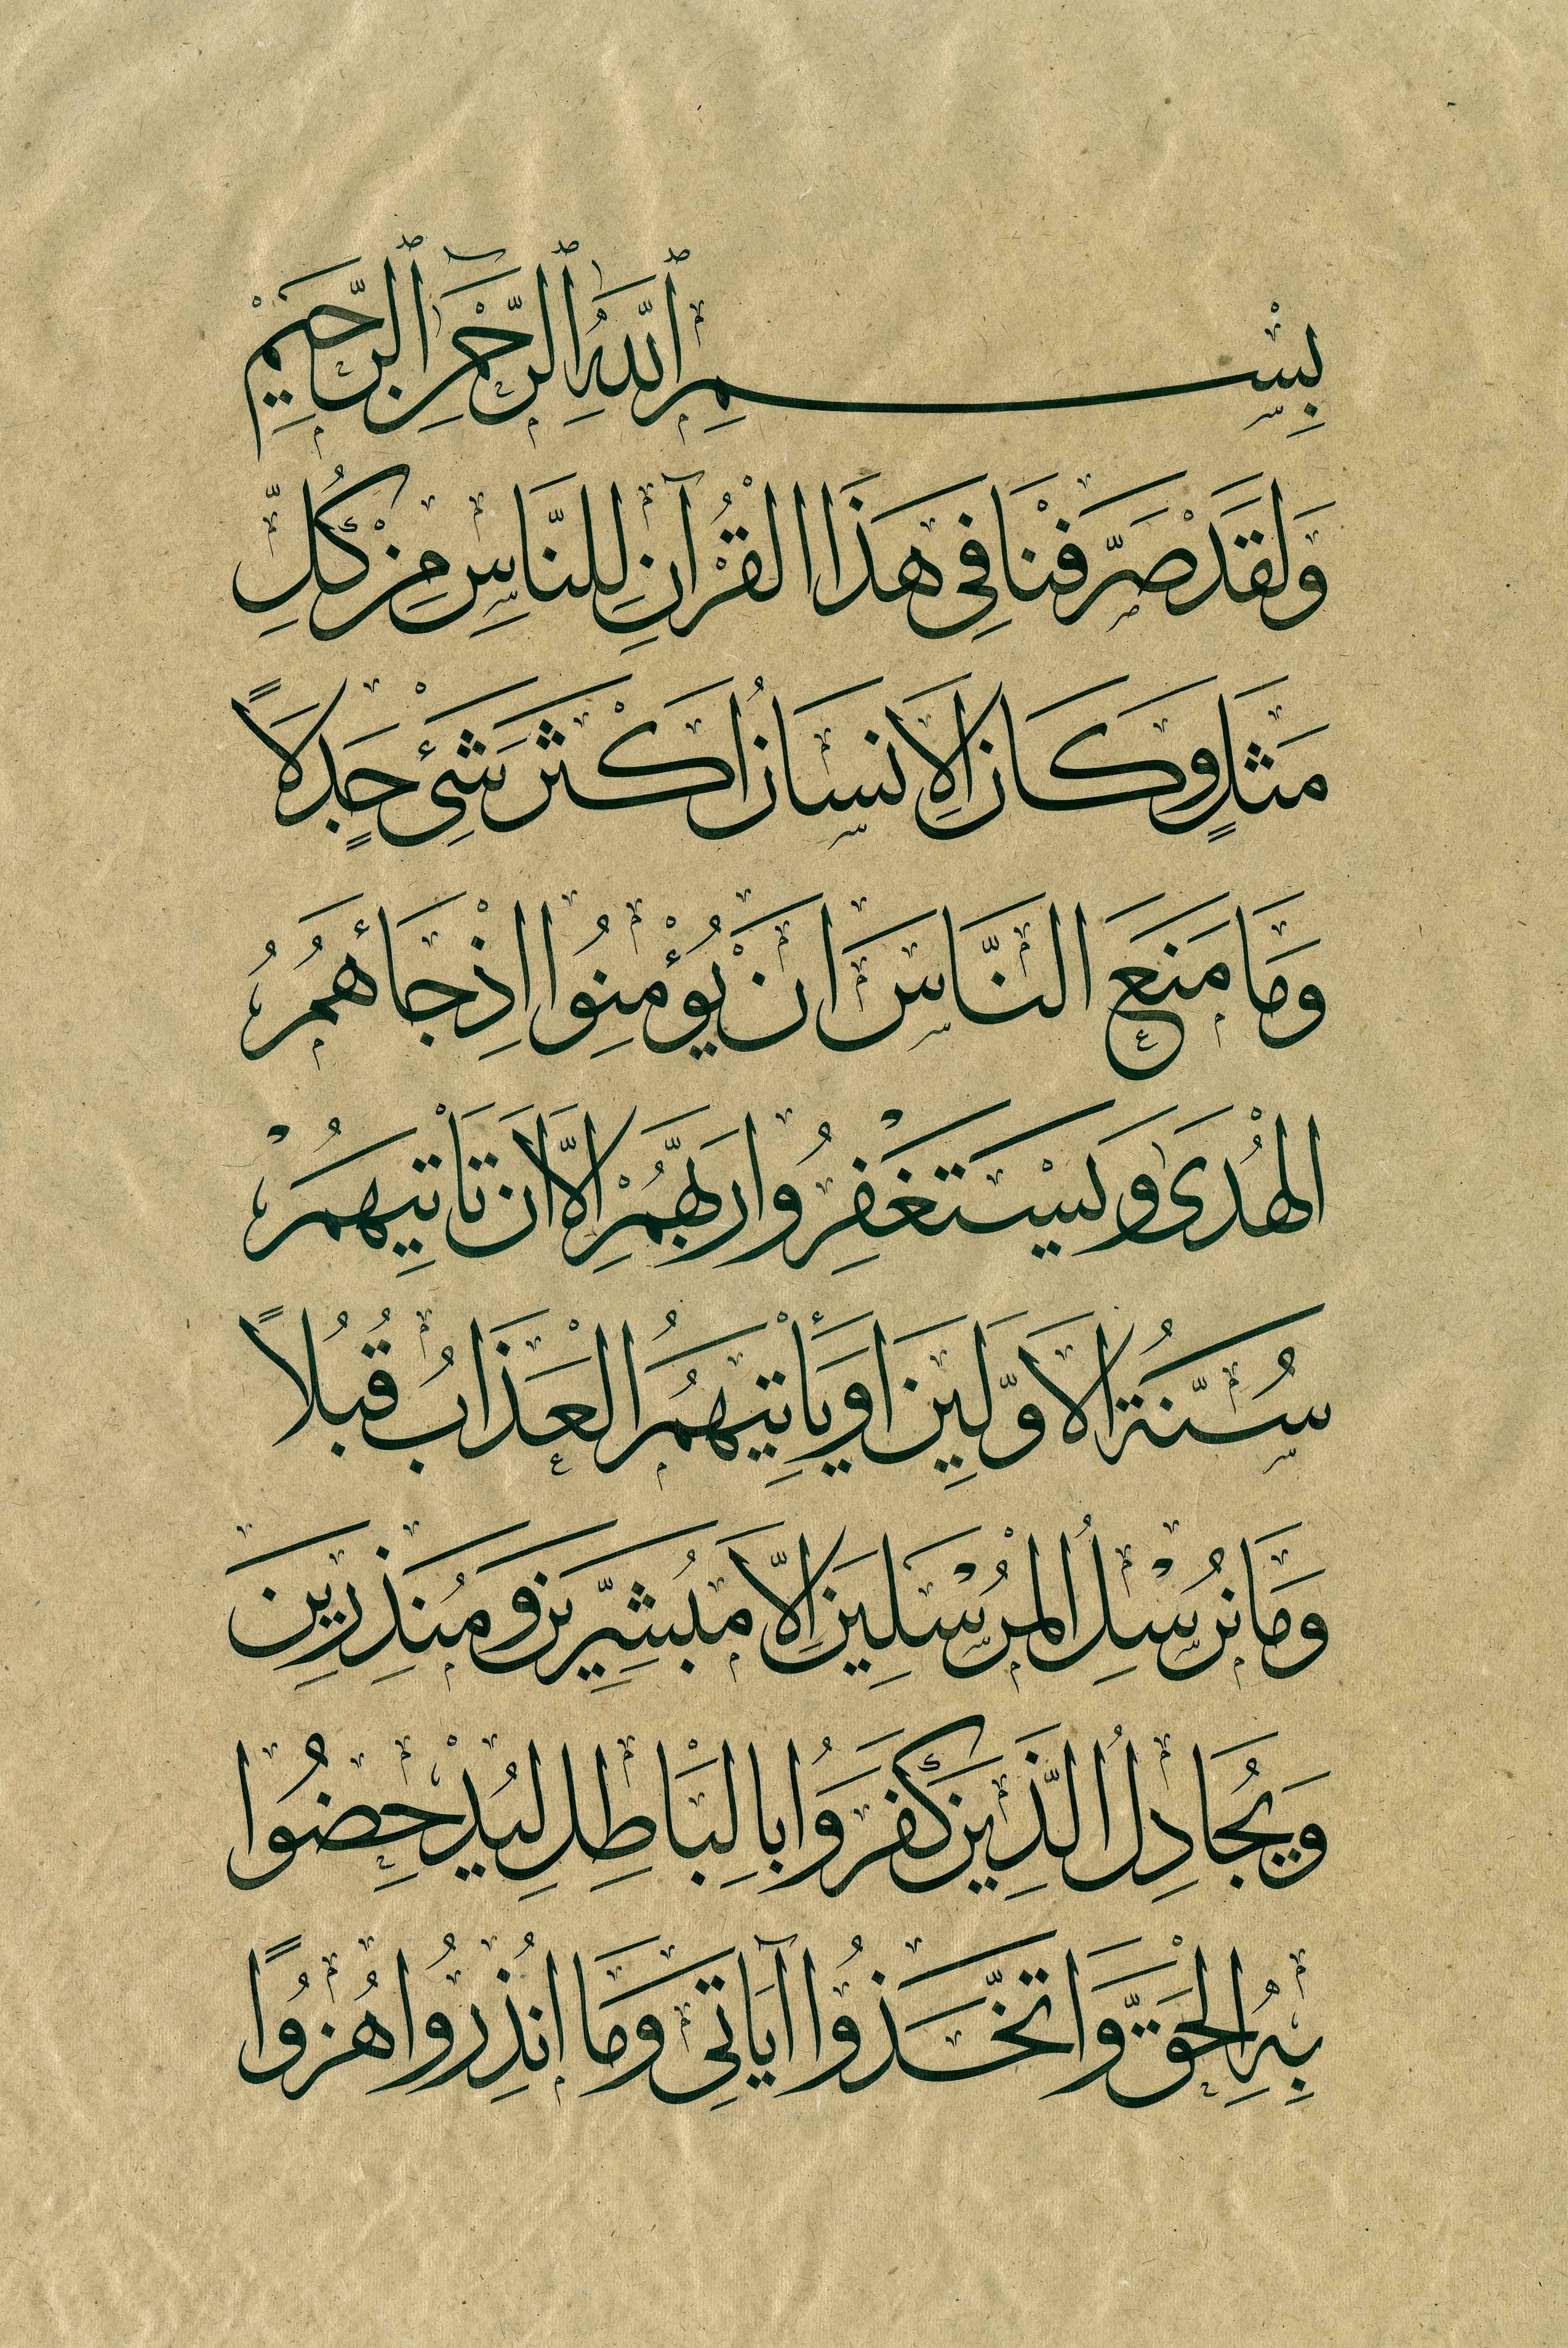 بِسْمِ ٱللَّهِ ٱلرَّحْمٰنِ ٱلرَّحِيْمِ
وَلَقَدْ صَرَّفْنَا فِي هَذَا الْقُرْآنِ لِلنَّاسِ مِنْ كُلِّ
مَثَلٍ وَكَانَ الْاِنسَانُ اَكْثَرَ شَيْءٍ جَدَلاً
وَمَا مَنَعَ النَّاسَ اَنْ يُؤْمِنُوا اِذْ جَاءَهُمُ
الْهُدَىٰ وَيَسْتَغْفِرُوا رَبَّهُمْ اِلَّا اَنْ تَأْتِيَهُمْ
سُنَّةُ الْاَوَّلِينَ اَوْ يَأْتِيَهُمُ الْعَذَابُ قُبُلًا
وَمَا نُرْسِلُ الْمُرْسَلِينَ اِلَّا مُبَشِّرِينَ وَمُنذِرِينَ
وَيُجَادِلُ الَّذِينَ كَفَرُوا بِالْبَاطِلِ لِيُدْحِضُوا
بِهِ الْحَقَّ وَاتَّخَذُوا آيَاتِي وَمَا اُنْذِرُوا هُزُوًا